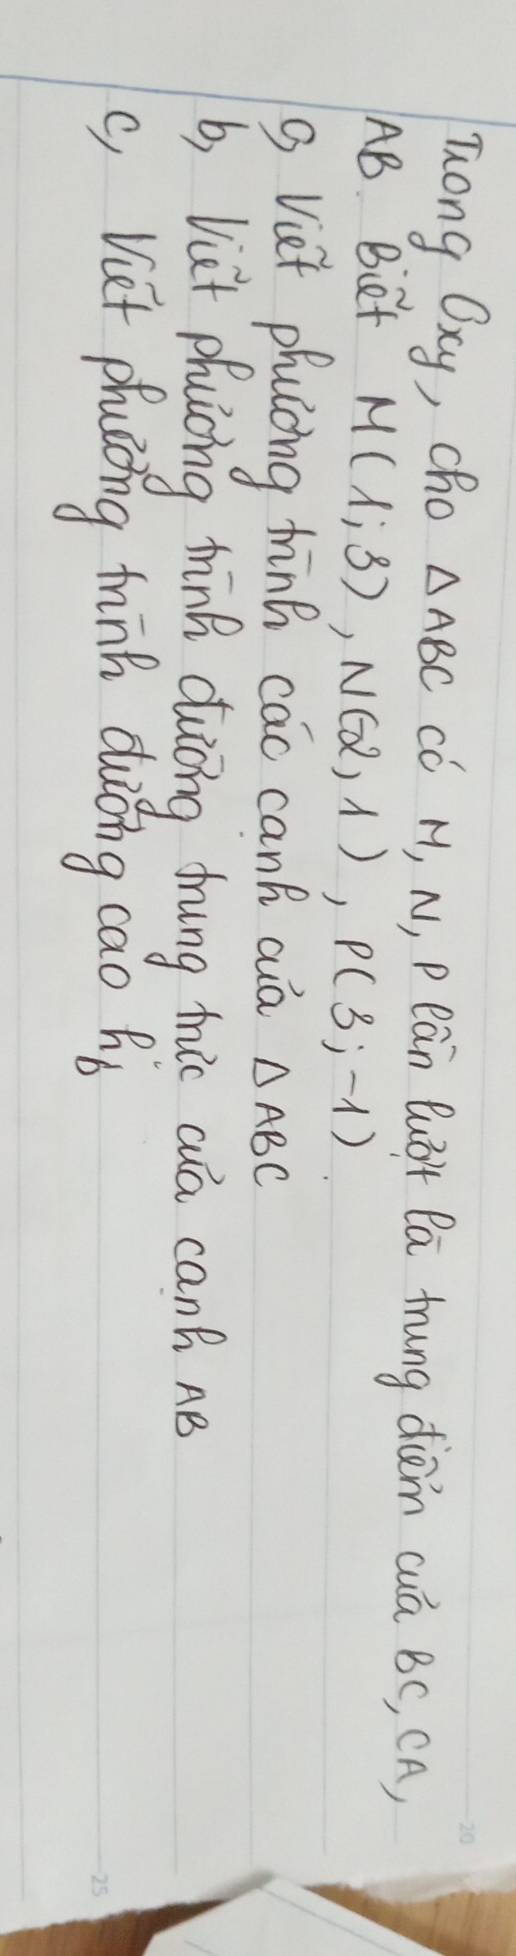 Trong Oxy, cho △ABC có M, N, P lần lượt là trung điểm của BC, CA,
AB. Biết M(1;3), N(-2;1), P(3;-1)
a, Viết phương trình các cạnh của △ABC
b, Viết phương trình đường trung trực của cạnh AB
c, Viết phương trình đường cao h_b
20
25